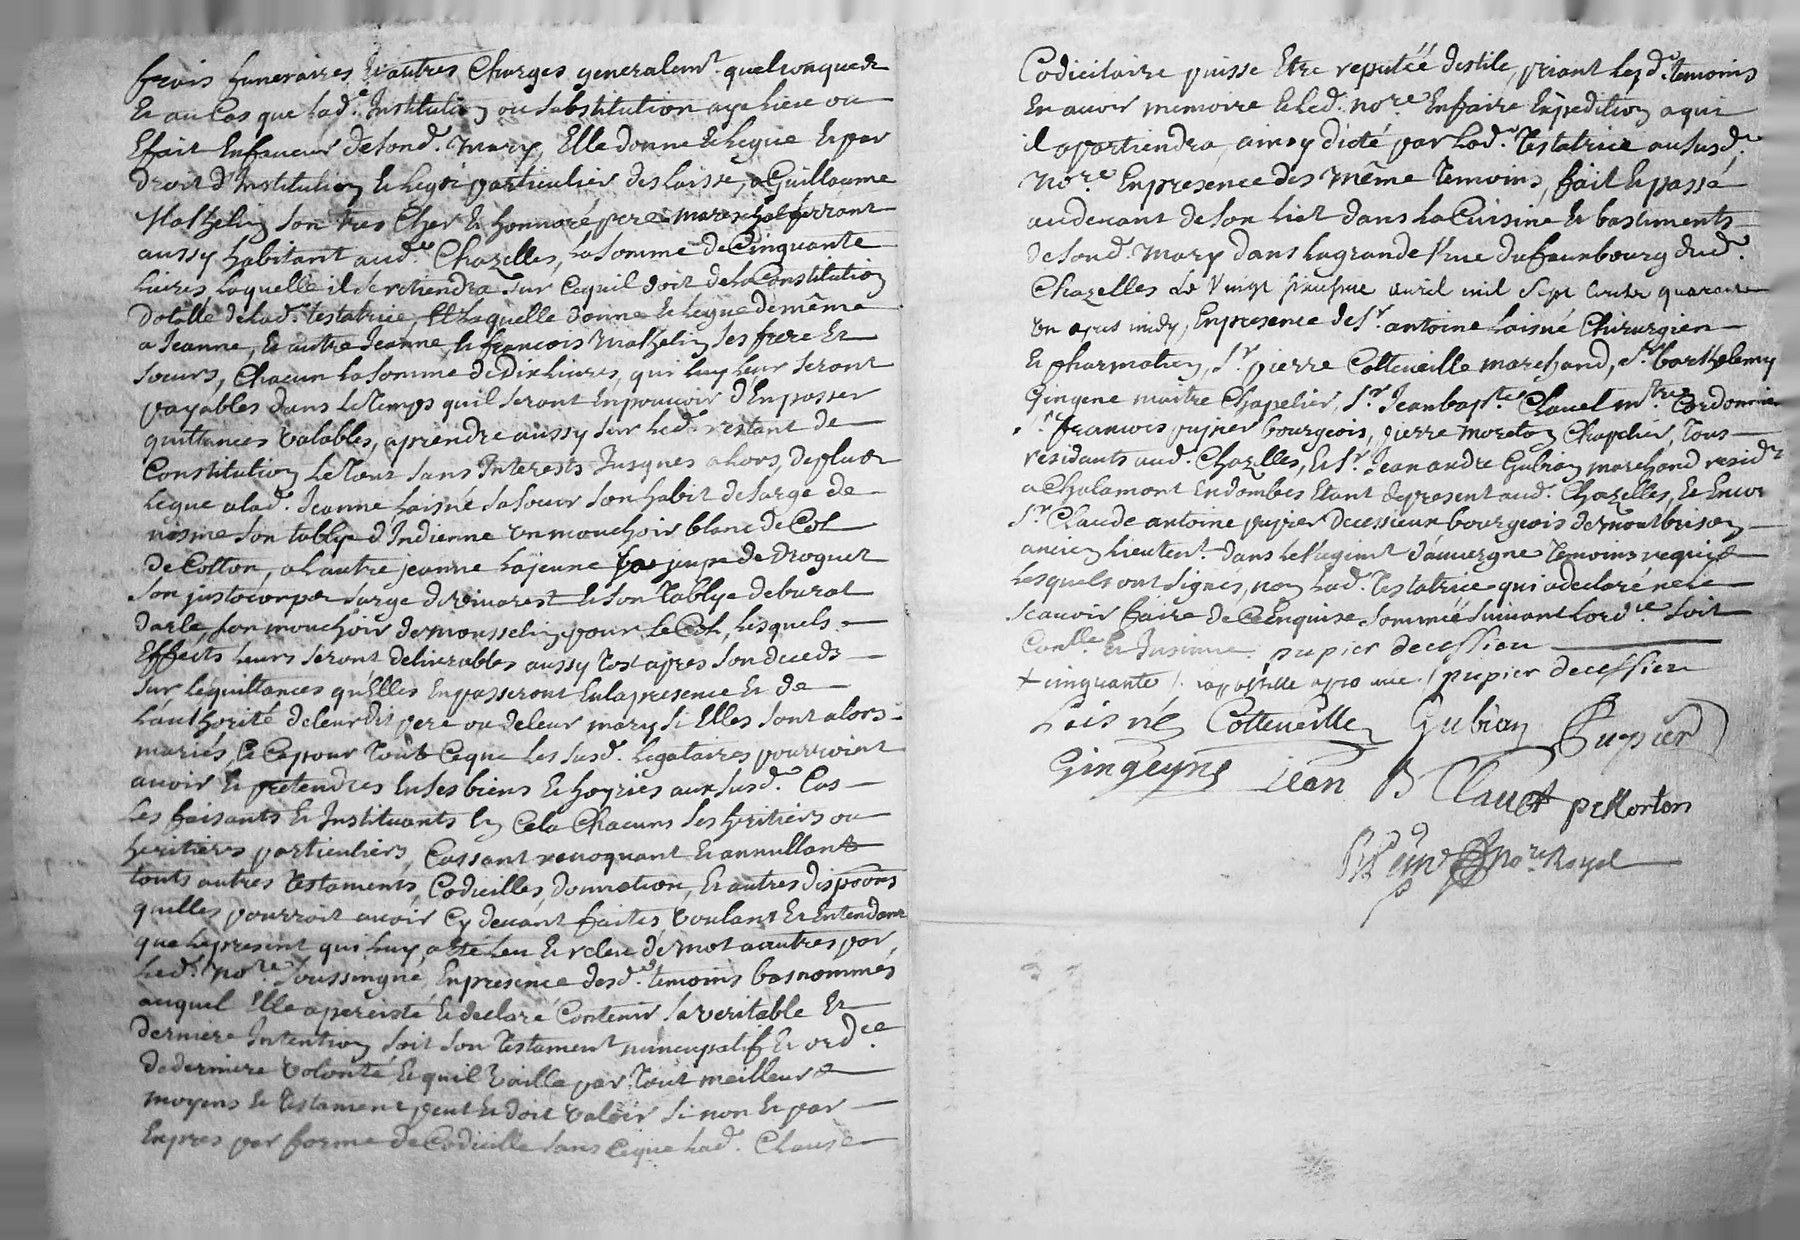 frais funeraires & autres Charges generalemt. quelconques
Et au Cas que lad. Institution ou substitution aye lieu ou
Effait Enfaveur de sond. Mary, Elle donne & legue & par
droit d'Institution & legat particulier deslaisse, a Guillaume
Mathelin son tres Cher & honnoré pere mareschal ferrant
aussy habitant aud. Chazelles, la somme de Cinquante
Livres laquelle il se retiendra sur Cequil doit de la Constitution
Dotalle de lad. testatrice, Et laquelle donne & legue de même
a Jeanne, & autre Jeanne & francois Mathelin ses frere Et
soeurs, Chacun la somme de Dix livres, qui leur seront
payables dans le temps quil seront Enpouvoir d'Enpasser
quittances valables, aprendre aussy sur led. restant de
Constitution Le tout sans Interests Jusques alors, deplus
legue alad. Jeanne laisné sa soeur son habit de sarge de
nisme son tablye d'Indienne un mouchoir blanc de Col
de Cotton, a lautre jeanne lajeune jupe de droguet
son justocorps sarge de vivarest & son tablye de burat
darle, son mouchoir de mousselin pour le Col, lesquels
Effects leurs seront delivrables aussy tost apres son deceds
sur les quittances qu'Elles Enpasseront Enlapresence & de
L'authorité de leurdit pere ou de leur mary si Elles sont alors
mariés, & Cepour tout Ceque les susd. legataires pourroient
avoir & pretendres Enses biens & hoyries aux susd. Cas
Les faisants & Instituants En Cela Chacuns ses heritiers ou
heritieres particuliers, Cassant revoquant & annullant
touts autres testaments, Codicilles, donnation, & autres dispoõns
quelles pourroit avoir Cy devant faites voulant Et Entendant
que le present qui luy a eté leu & releu de mot a autres par
led. nore. soussigné, Enpresence desd. temoins bas nommés
auquel Elle a percisté & declaré Contenir sa veritable Et
derniere Intention soit son testament nuncupatif & ordce.
de derniere volonté & quil vaille par tout meilleurs
moyens & testament peut & doit valoir si non & par
Enpres par forme de Codicille sans Ceque lad. Clause
Codicilaire puisse Etre reputéé destile, priant lesd. temoins
En avoir memoire & led. nore. Enfaire Expedition a qui
il apartiendra, ainsy dicté par lad. Testatrice au susd.
nore. Enpresence des même temoins, fait & passé
audevant de son lict dans la Cuisine & bastiments
de sond. Mary dans la grande Rue du faurbourg dud.
Chazelles Le Vingt avril mil Sept Cents quarante
un apres midy, Enpresence de Sr. antoine laisné Chirurgien
& pharmatien, Sr. pierre Cotteveille marchand, Sr. barthelemy
Gingene maitre Chapelier, Sr. Jean bapte. Clavel mtre. Cordonnier
Sr. francois pupier bourgeois, pierre moreton Chapelier, tous
residants aud. Chazelles, & Sr. Jean andre Gubian marchand residt
a Chalamont Endombes Etant depresent aud. Chazelles, & Encor
Sr. Claude antoine pupier decessieux bourgeois de montbrison
ancien lieutent. dans le Regimt d'auvergne temoins requis
Lesquels ont signés, non lad. testatrice qui a declaré ne le
scavoir faire de Ce Enquise sommée suivant lorde. soit
Conlle. & Insinue. pupier decessieu
+ cinquante / apostille aprouvee / pupier decessieu
Laisné Cotteveille Gubian Pupier
Gingeyne Jean B Clavel p Morton
nore. Royal